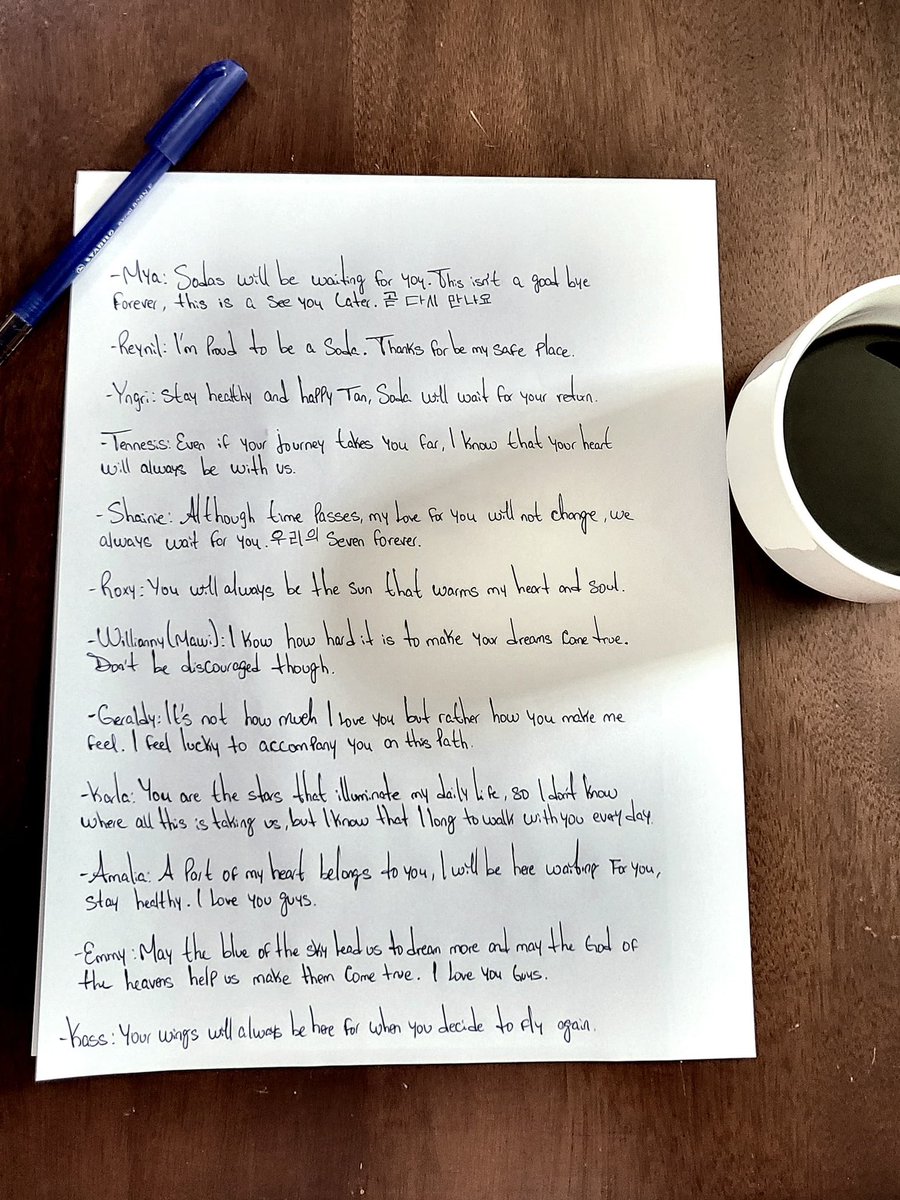 STABILO
-Mya: Sodas will be waiting for you. This isn't a good bye
forever, this is a see you later. 곧 다시 만나요
-Reynil: I'm Proud to be a Soda. Thanks for be my safe Place.
-Yngri: Stay healthy and happy Tan, Soda will wait for your return.
-Tennesis: Even if your journey takes you far, I know that your heart
will always be with us.
-Shainie: Although time Passes, my love for you will not change, we
always wait for you. 우리의 Seven forever.
-Roxy: You will always be the sun that warms my heart and soul.
-Willianny (Mawi): I kow how hard it is to make your dreams come true.
Don't be discouraged though.
-Geraldy: It's not how much I love you but rather how you make me
feel. I feel lucky to accompany you on this Path.
-Karla: You are the stars that illuminate my daily life, so I don't know
where all this is taking us, but I know that I long to walk with you every day.
-Amalia: A Part of my heart belongs to you, I will be here waiting For you,
stay healthy. I Love you guys.
-Emmy: May the blue of the sky lead us to dream more and may the God of
the heavens help us make them come true. I Love you Guys.
-Kass: Your wings will always be here for when you decide to fly again.